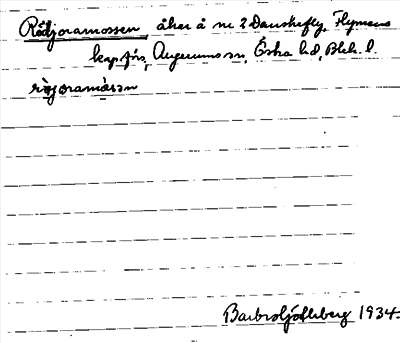 Rödjoramossen, åker å nr 2 Danskefly, Flymens
kap.förs, Augerums sn, Östra hd, Blek. l.
röjoramåsan
1934.